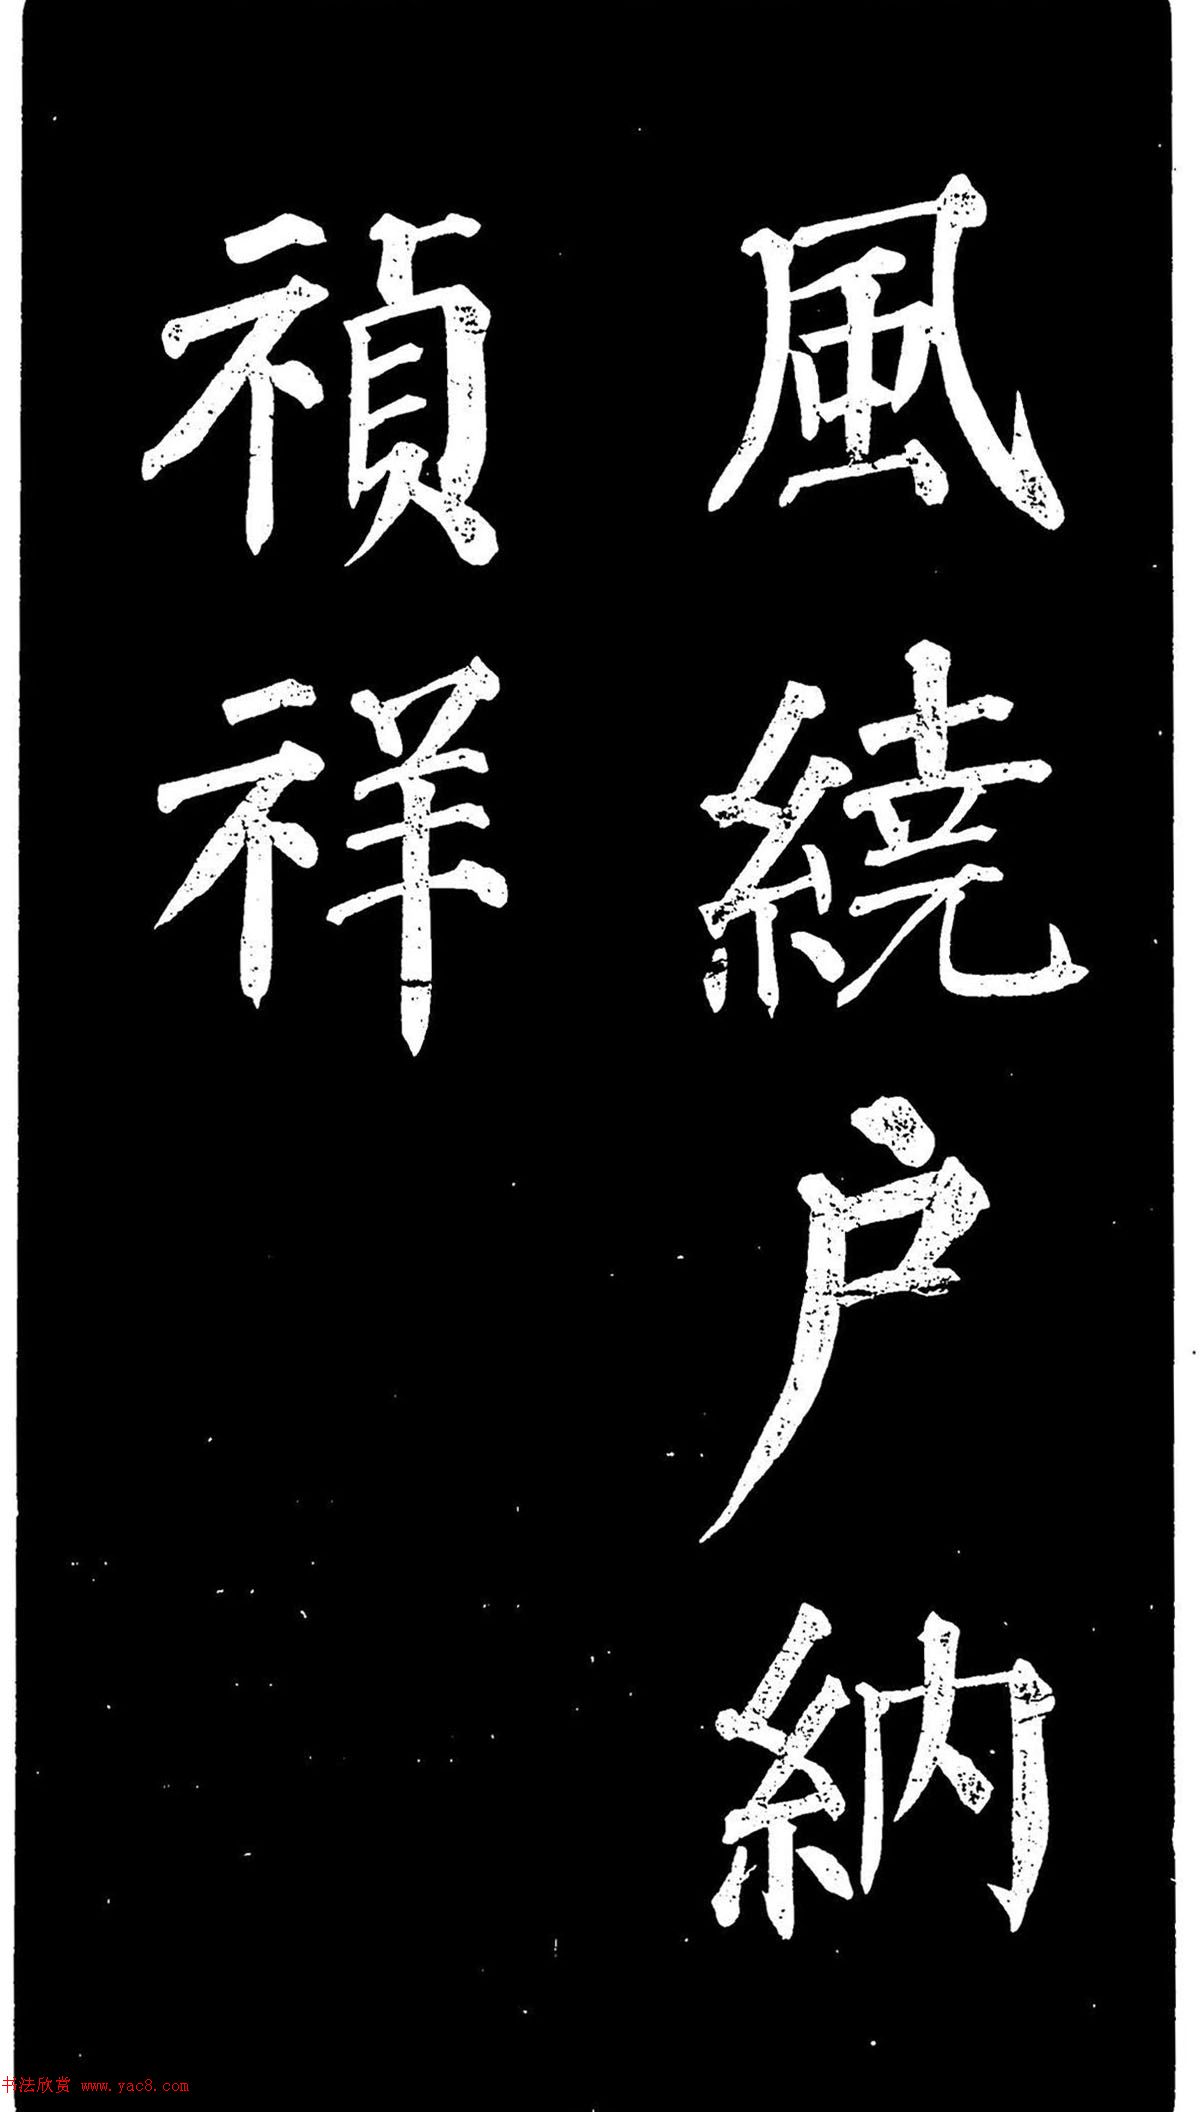 風繞户納
禎祥
书法欣赏 www.yac8.com